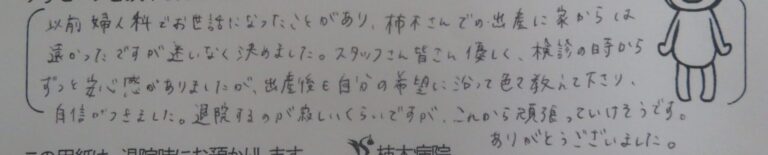 以前婦人科でお世話になったことがあり、柿木さんでの出産に家からは
遠かったですが迷いなく決めました。スタッフさん皆さん優しく、検診の時から
ずっと安心感がありましたが、出産後も自分の希望に沿って色々教えて下さり、
自信がつきました。退院するのが寂しいくらいですが、これから頑張っていけそうです。
ありがとうございました。
この用紙は、退院時にお預かりします 柿木病院